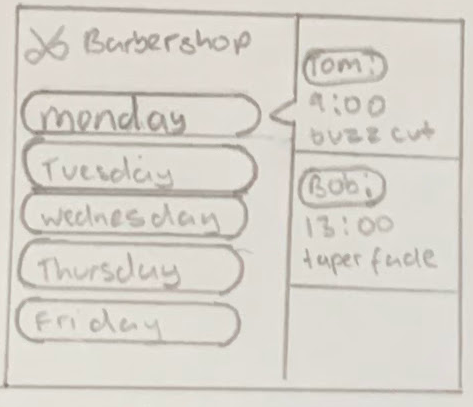 Barbershop
monday
Tuesday
wednesday
Thursday
Friday
Tom:
9:00
buzz cut
Bob:
13:00
taper fade